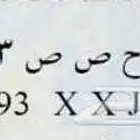 ح ص ص ٣
93 X X J